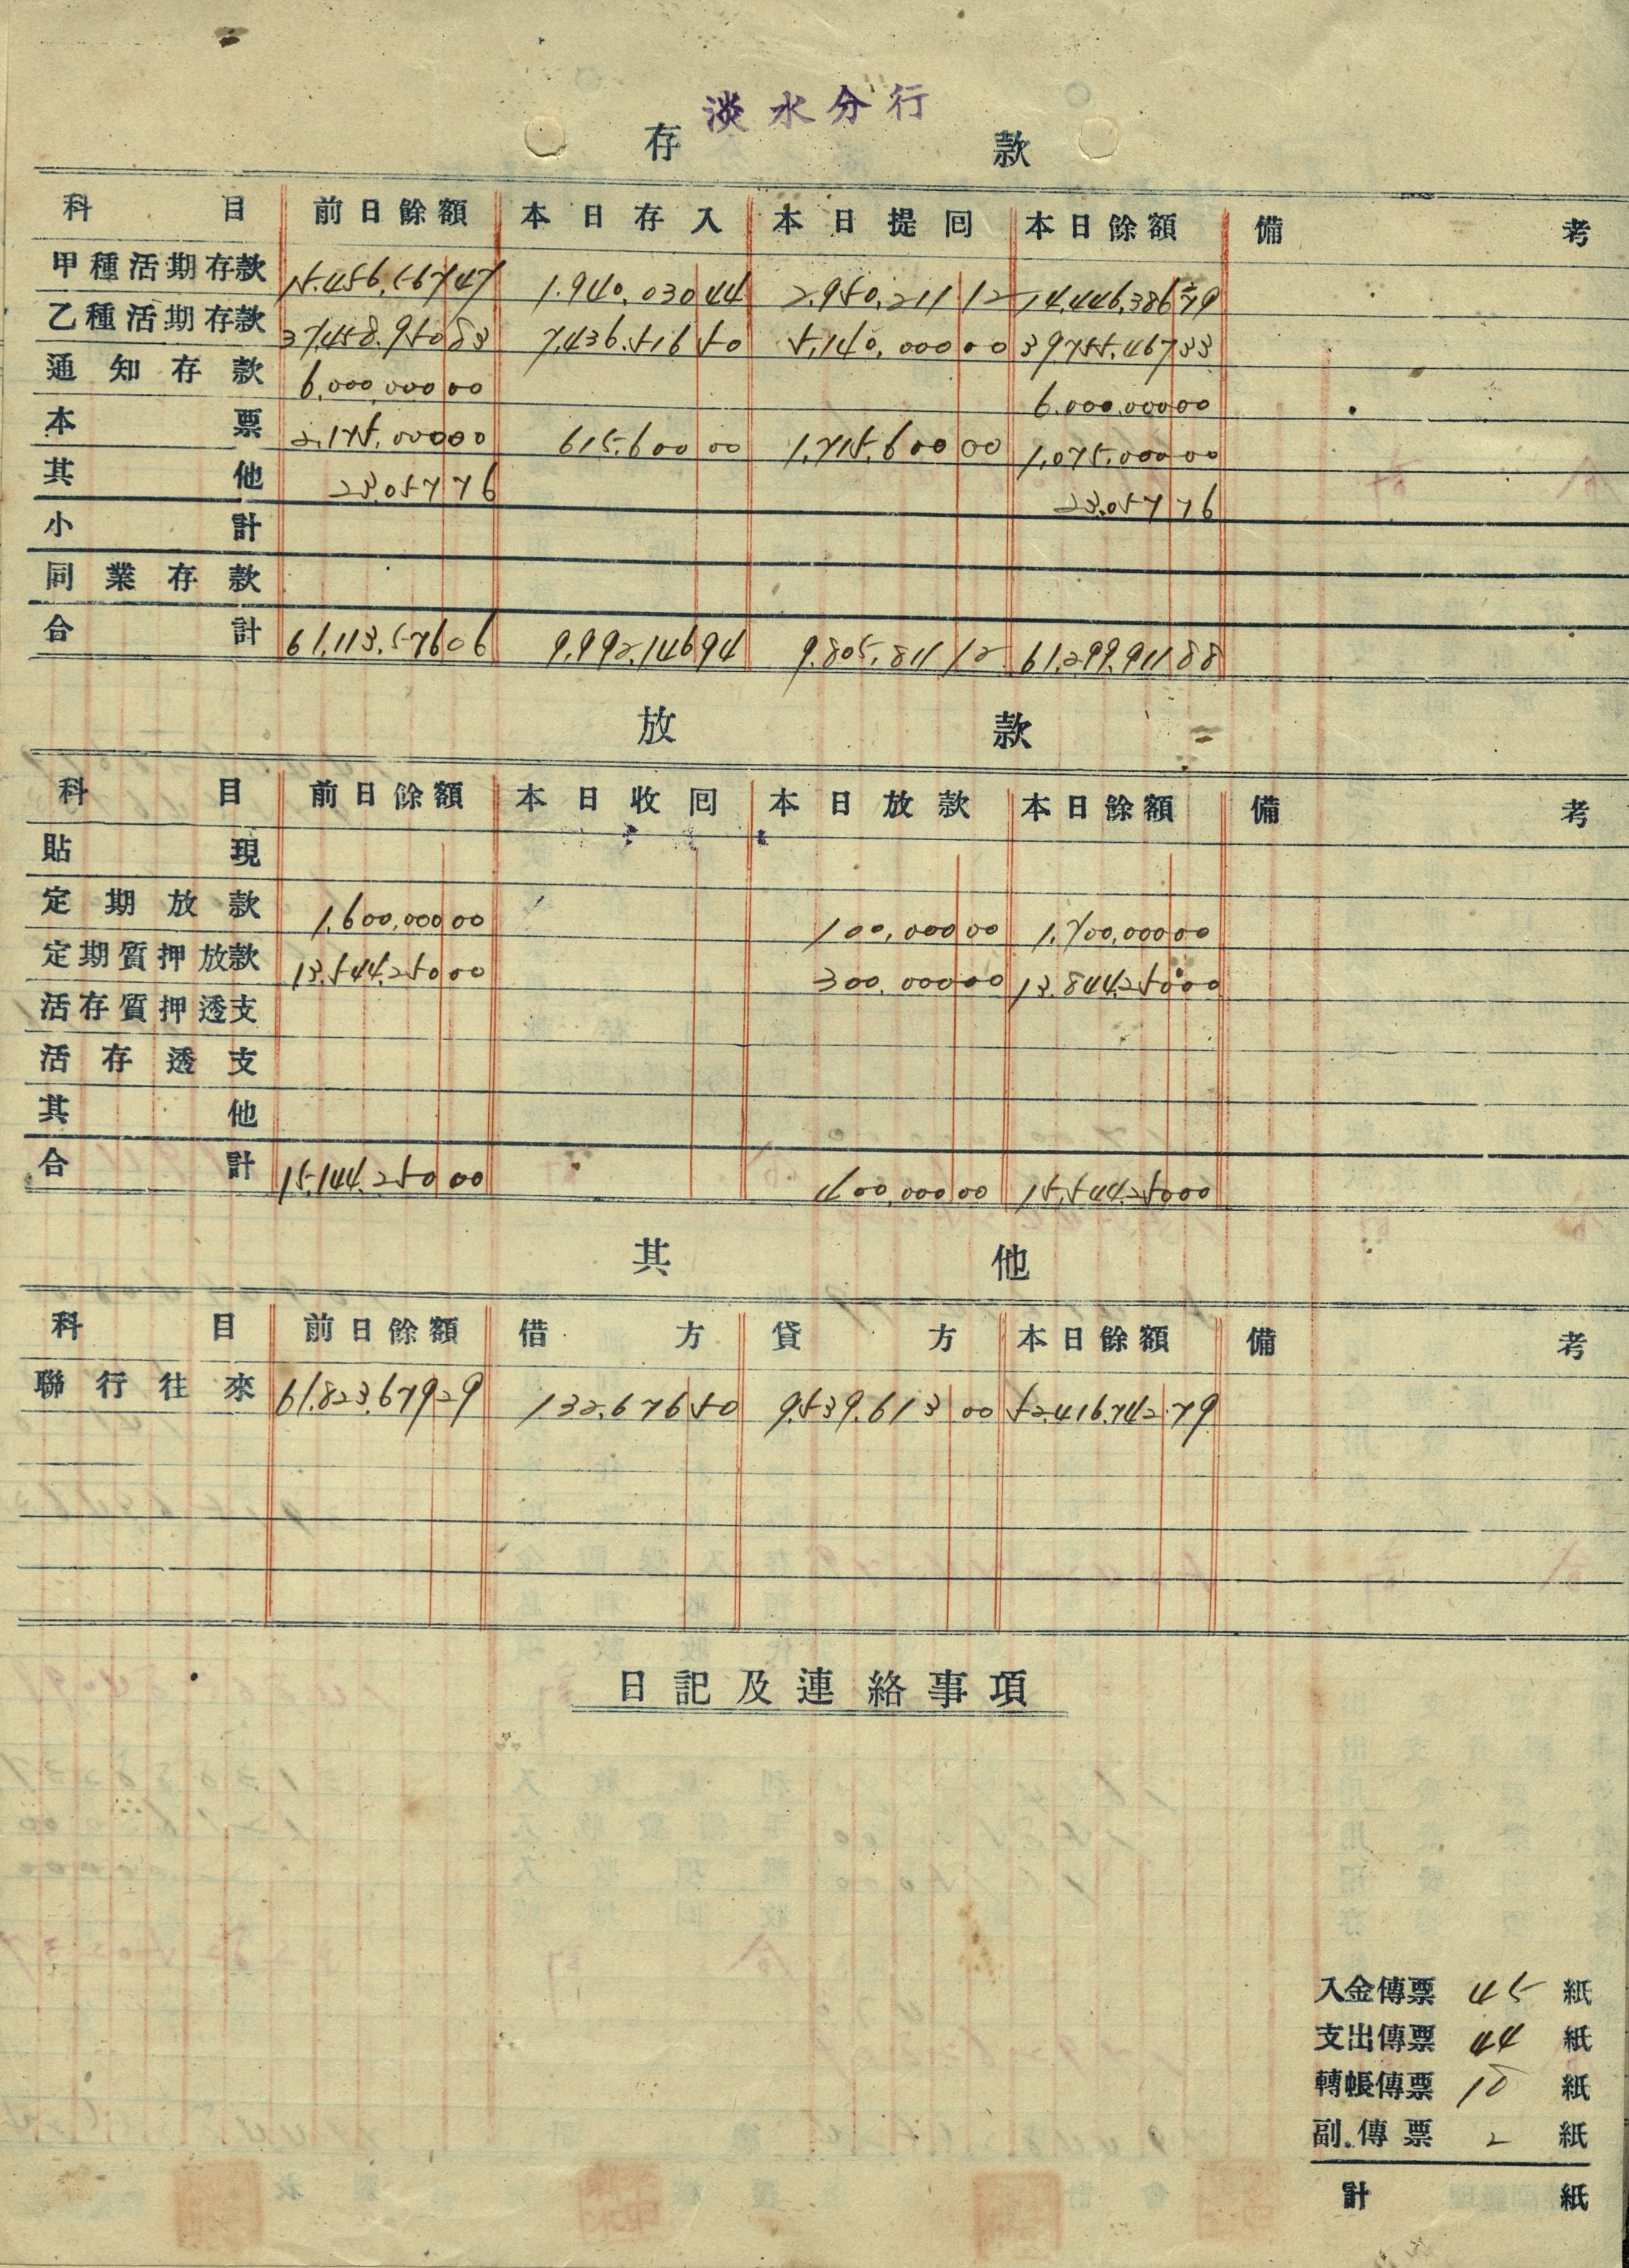 淡水分行
存款
科目 前日餘額 本日存入 本日提回 本日餘額 備考
甲種活期存款 15,456,567 47 1,940,030 44 2,950,211 12 14,446,386 79
乙種活期存款 37,458,950 83 7,436,516 50 5,140,000 00 39,755,467 33
通知存款 6,000,000 00 6,000,000 00
本票 2,175,000 00 615,600 00 1,715,600 00 1,075,000 00
其他 23,057 76 23,057 76
小計
同業存款
合計 61,113,576 06 9,992,146 94 9,805,811 12 61,299,911 88
放款
科目 前日餘額 本日收回 本日放款 本日餘額 備考
貼現
定期放款 1,600,000 00 100,000 00 1,700,000 00
定期質押放款 13,544,250 00 300,000 00 13,844,250 00
活存質押透支
活存透支
其他
合計 15,144,250 00 400,000 00 15,544,250 00
其他
科目 前日餘額 借方 貸方 本日餘額 備考
聯行往來 61,823,679 29 132,676 50 9,539,613 00 52,416,742 79
日記及連絡事項
入金傳票 45 紙
支出傳票 44 紙
轉帳傳票 10 紙
副傳票 2 紙
計 紙